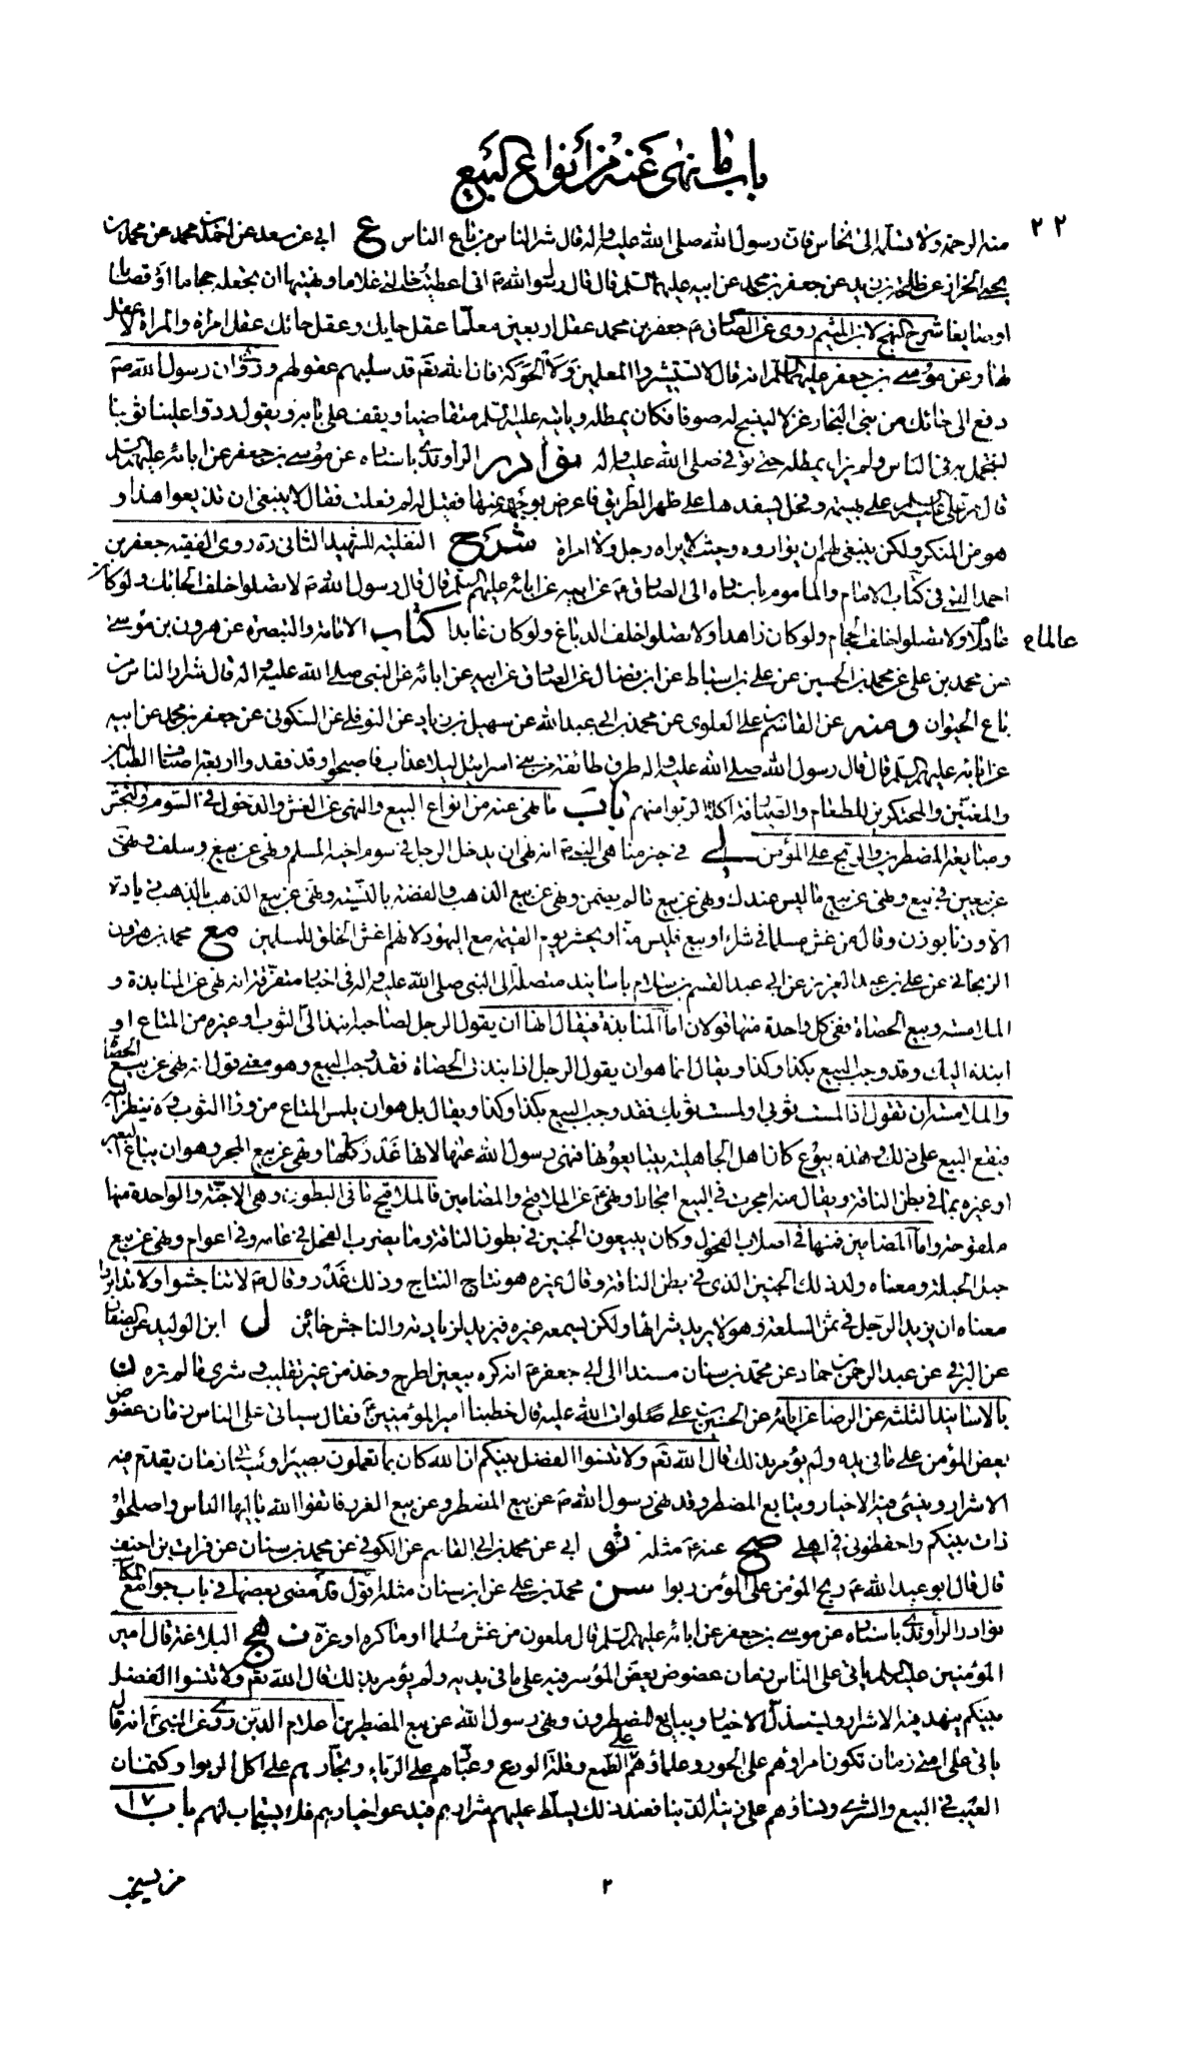 باب ما نهى عنه من أنواع البيع
٢٢
منه الرحمة ولا تسلمه الى نخاس فان رسول الله صلى الله عليه واله قال شر الناس من باع الناس ع ابى عن سعد عن احمد بن محمد عن محمد بن
يحيى الخزاز عن طلحة بن زيد عن جعفر بن محمد عن ابيه عليهما السلم قال قال رسول الله ص انى اعطيت خالتى غلاما ونهيتها ان تجعله حجاما او قصابا
او صايغا شرح النهج لابن الميثم روى عن الصادق ع جعفر بن محمد عقل اربعين معلما عقل حايك وعقل حائك عقل امراة والمراة لا عقل
لها وعن موسى بن جعفر عليهما السلم انه قال لا تستشيروا المعلمين ولا الحوكة فان الله تعم قد سلبهم عقولهم وروى ان رسول الله ص
دفع الى حائك من بنى النجار غزلا لينسج له صوفا فكان يمطله وياتيه عليه السلم متقاضيا ويقف على بابه ويقول ردوا علينا ثوبنا
لنتجمل به فى الناس ولم يزل يمطله حتى توفى صلى الله عليه واله نوادر الراوندى باسناده عن موسى بن جعفر عن ابائه عليهم السلم
قال مر على عليه السلم على بهيمة وفحل يسفدها على ظهر الطريق فاعرض بوجهه عنها فقيل له لم فعلت فقال لا ينبغى ان تذيعوا هذا و
هو من المنكر ولكن ينبغى لهم ان يواروه وحيث لا يراه رجل ولا امراة شرح النفلية للشهيد الثانى ره روى الفقيه جعفر بن
احمد القمى فى كتاب الامام والماموم باسناده الى الصادق ع عن ابيه عن ابائه عليهم السلم قال قال رسول الله ص لا تصلوا خلف الحائك ولو كان
عالما ولا تصلوا خلف الحجام ولو كان زاهدا ولا تصلوا خلف الدباغ ولو كان عابدا كتاب الامامة والتبصرة عن هرون بن موسى
عن محمد بن على عن محمد بن الحسين عن على بن اسباط عن ابن فضال عن الصادق عن ابيه عن ابائه عن النبى صلى الله عليه واله قال شرار الناس من
باع الحيوان ومنه عن القاسم بن على العلوى عن محمد بن ابى عبد الله عن سهل بن زياد عن النوفلى عن السكونى عن جعفر بن محمد عن ابيه
عن ابائه عليهم السلم قال قال رسول الله صلى الله عليه واله طرق طائفة من بنى اسرائيل ليلا عذاب فاصبحوا وقد فقدوا اربعة اصناف الطبالين
والمغنين والمحتكرين للطعام والصيارفة اكلة الربوا منهم باب ما نهى عنه من انواع البيع والنهى عن الغش والدخول فى السوم والنجش
ومبايعة المضطرين والربح على المؤمن لى فى خبر مناهى النبى ص انه نهى ان يدخل الرجل فى سوم اخيه المسلم ونهى عن بيع وسلف ونهى
عن بيعين فى بيع ونهى عن بيع ما ليس عندك ونهى عن بيع ما لم يضمن ونهى عن بيع الذهب والفضة بالنسية ونهى عن بيع الذهب بالذهب زيادة
الا وزنا بوزن وقال من غش مسلما فى شراء او بيع فليس منا ويحشر يوم القيمة مع اليهود لانهم اغش الخلق للمسلمين مع محمد بن هرون
الزنجانى عن على بن عبد العزيز عن ابى عبد القسم بن سلام باسانيد متصلة الى النبى صلى الله عليه واله فى اخبار متفرقة انه نهى عن المنابذة و
الملامسة وبيع الحصاة ففى كل واحدة منها قولان اما المنابذة فيقال انها ان يقول الرجل لصاحبه انبذ الى الثوب او غيره من المتاع او
انبذه اليك وقد وجب البيع بكذا وكذا ويقال انما هو ان يقول الرجل اذا نبذت الحصاة فقد وجب البيع وهو معنى قوله انه نهى عن بيع الحصاة
والملامسة ان تقول اذا لمست ثوبى او لمست ثوبك فقد وجب البيع بكذا وكذا ويقال بل هو ان يلمس المتاع من وراء الثوب ولا ينظر اليه
فيقع البيع على ذلك وهذه بيوع كان اهل الجاهلية يتبايعونها فنهى رسول الله عنها لانها غرر كلها ونهى عن بيع المجر وهو ان يباع البعير
او غيره بما فى بطن الناقة ويقال منه امجرت فى البيع امجارا ونهى ص عن الملاقيح والمضامين فالملاقيح ما فى البطون وهى الاجنة والواحدة منها
ملقوحة واما المضامين فمنها فى اصلاب الفحول وكان يبيعون الجنين فى بطون الناقة وما يضرب الفحل فى عامه وفى اعوام ونهى عن بيع
حبل الحبلة ومعناه ولد ذلك الجنين الذى فى بطن الناقة وقال غيره هو نتاج النتاج وذلك غرر وقال ص لا تناجشوا ولا تدابروا
معناه ان يزيد الرجل فى ثمن السلعة وهو لا يريد شرائها ولكن ليسمعه غيره فيزيد لزيادته والناجش خائن ل ابن الوليد عن الصفار
عن البرقى عن عبد الرحمن بن حماد عن محمد بن سنان مسندا الى ابى جعفر ع انه كره بيعين اطرح وخذ من غير تقليب وشرى ما لم تره ن
بالاسانيد الثلثة عن الرضا عن ابائه عن الحسين بن على صلوات الله عليه قال خطبنا امير المؤمنين ع فقال سياتى على الناس زمان عضوض
بعض المؤمن على ما فى يده ولم يؤمر بذلك قال الله تعم ولا تنسوا الفضل بينكم ان الله كان بما تعملون بصيرا وسياتى زمان يقدم فيه
الاشرار وينسى فيه الاخيار ويبايع المضطر وقد نهى رسول الله ص عن بيع المضطر وعن بيع الغرر فاتقوا الله يا ايها الناس واصلحوا
ذات بينكم واحفظونى فى اهلى صح عنه ع مثله ثو ابى عن محمد بن ابى القاسم عن الكوفى عن محمد بن سنان عن فرات بن احنف
قال قال ابو عبد الله ع ربح المؤمن على المؤمن ربوا سن محمد بن على عن ابن سنان مثله اقول قد مضى بعضها فى باب جوامع المكاسب
نوادر الراوندى باسناده عن موسى بن جعفر عن ابائه عليهم السلم قال ملعون من غش مسلما او ماكره او غره نهج البلاغة قال امير
المؤمنين عليه السلم ياتى على الناس زمان عضوض يعض المؤسر فيه على ما فى يديه ولم يؤمر بذلك قال الله تعم ولا تنسوا الفضل
بينكم ينهد فيه الاشرار وليستذل الاخيار ويبايع المضطرون ونهى رسول الله عن بيع المضطرين اعلام الدين روى عن النبى ص انه قال
ياتى على امتى زمان تكون امراؤهم على الجور وعلماؤهم على الطمع وقلة الورع وعبادهم على الرياء وتجارهم على اكل الربوا وكتمان
العيب فى البيع والشرى ونساؤهم على زينة الدنيا فعند ذلك يسلط عليهم شرارهم فيدعوا خيارهم فلا يستجاب لهم باب ١٧
٢
من يستحب